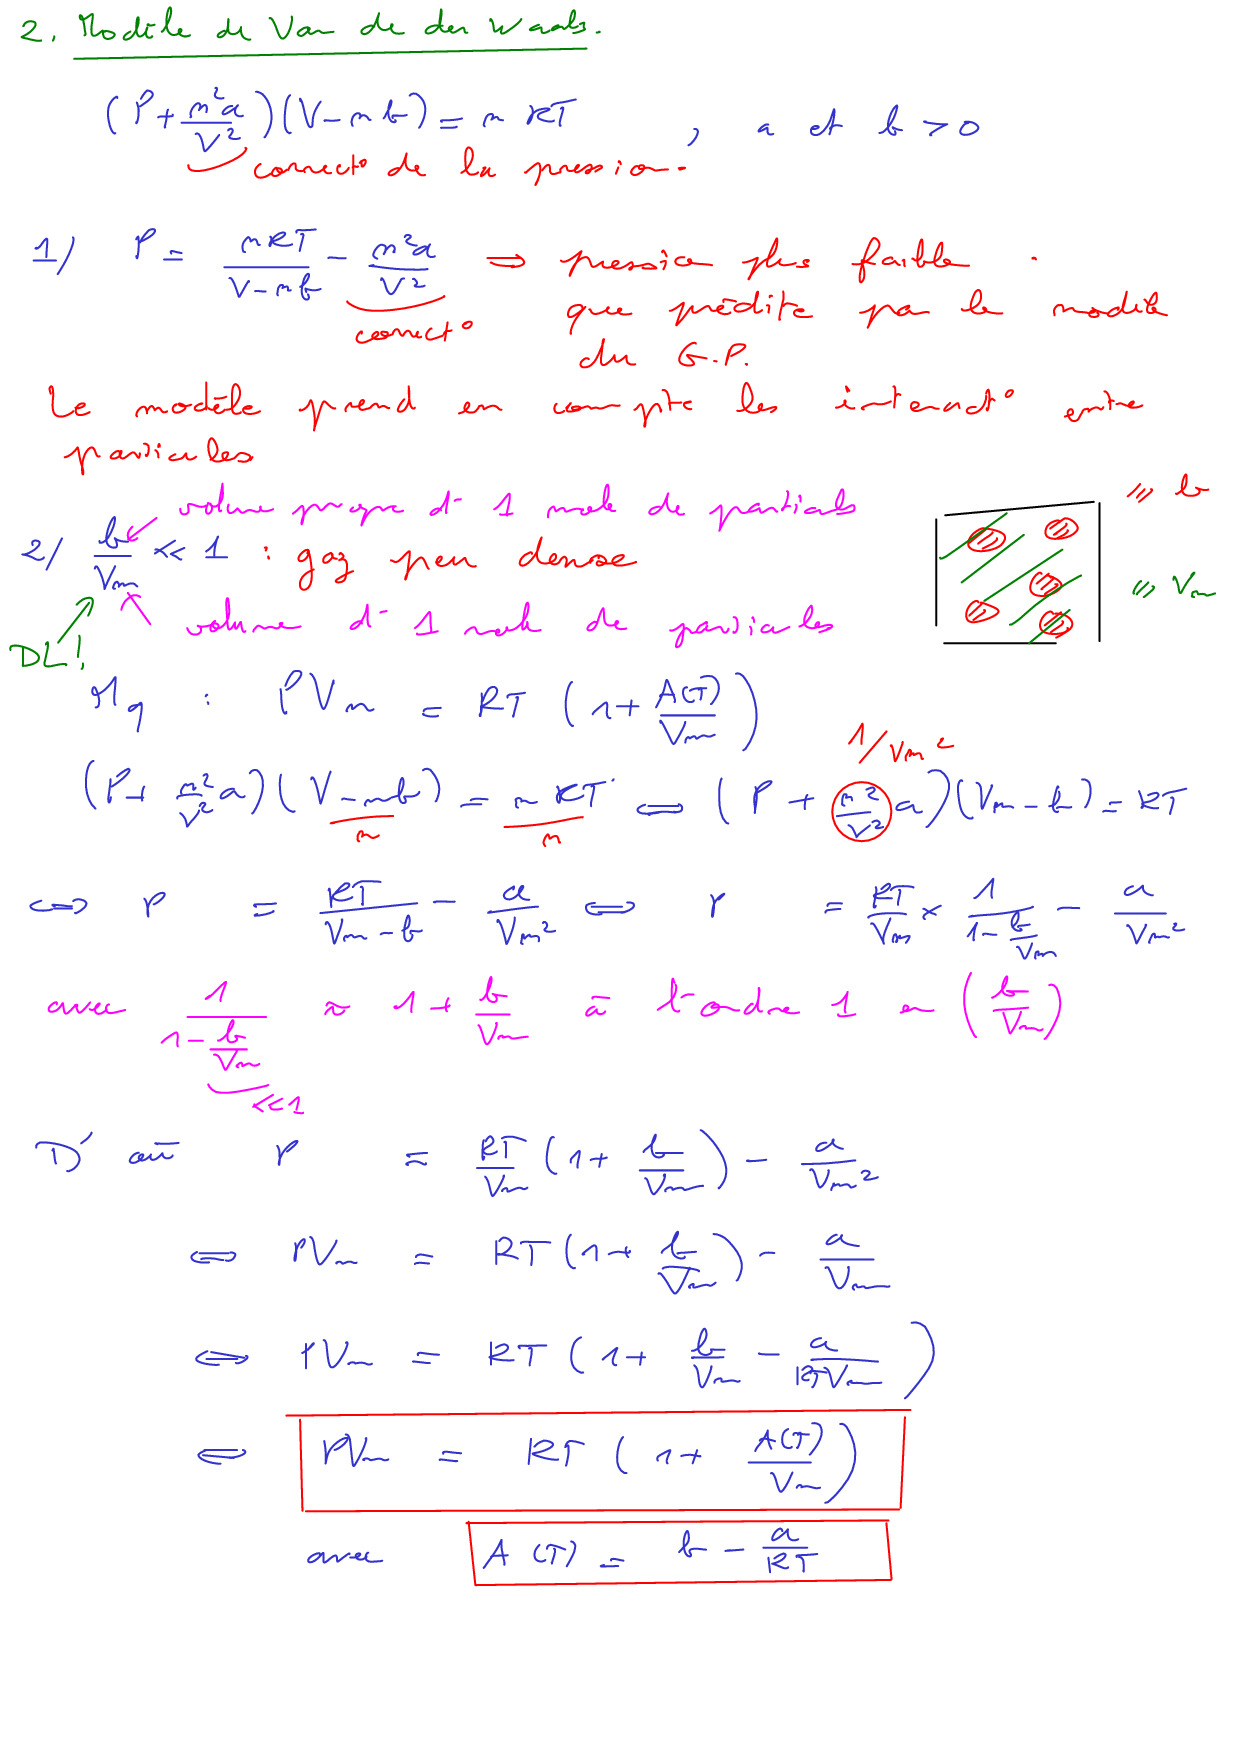 2. Modèle de Van de der Waals.
(P + n²a/V²)(V - nb) = nRT , a et b > 0
correct° de la pression.
1/ P = nRT/(V - nb) - n²a/V² ⇒ pression plus faible
correct° que prédite par le modèle
du G.P.
Le modèle prend en compte les interact° entre
particules
volume propre d' 1 mole de particules
/// b
2/ b/Vm << 1 : gaz peu dense
/// Vm
volume d' 1 mole de particules
DL!
Mq : PVm = RT (1 + A(T)/Vm)
1/Vm²
(P + n²/V² a)(V - nb)/n = nRT/n ⇔ (P + n²/V² a)(Vm - b) = RT
⇔ P = RT/(Vm - b) - a/Vm² ⇔ P = RT/Vm × 1/(1 - b/Vm) - a/Vm²
avec 1/(1 - b/Vm) ≈ 1 + b/Vm à l'ordre 1 en (b/Vm)
<<1
D'où P = RT/Vm (1 + b/Vm) - a/Vm²
⇔ PVm = RT (1 + b/Vm) - a/Vm
⇔ PVm = RT (1 + b/Vm - a/RTVm)
⇔ PVm = RT (1 + A(T)/Vm)
avec A(T) = b - a/RT